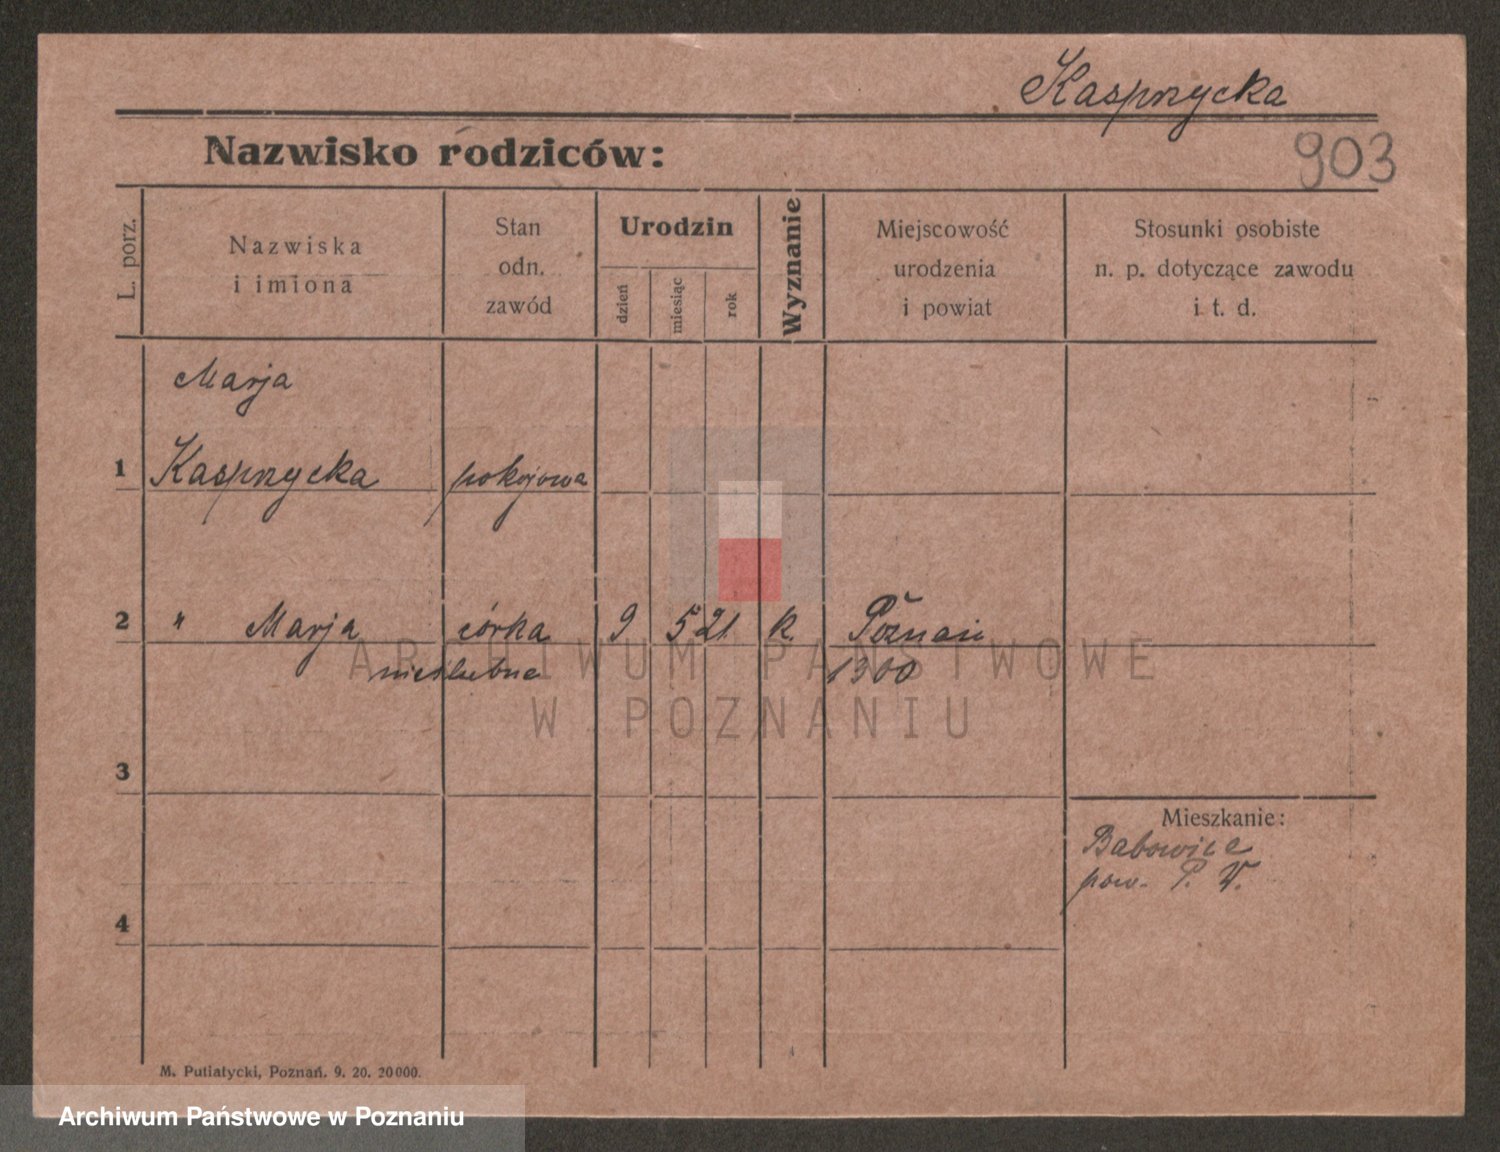 Kasprzycka
Nazwisko rodziców:
903
L. porz.
Nazwiska
i imiona
Stan
odn.
zawód
Urodzin
dzień
miesiąc
rok
Wyznanie
Miejscowość
urodzenia
i powiat
Stosunki osobiste
n. p. dotyczące zawodu
i t. d.
Marja
1 Kasprzycka pokojowa
2 " Marja córka 9 5 21 k. Poznań
nieślubna 1300
ARCHIWUM PAŃSTWOWE
W POZNANIU
3
Mieszkanie:
Babowice
pow. P. W.
4
M. Putiatycki, Poznań. 9. 20. 20000.
Archiwum Państwowe w Poznaniu